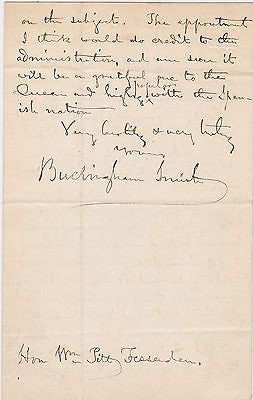 on the subject. The appointment
I think would do credit to the
administration, and am sure it
will be a grateful one to the
Queen and highly popular with the Span-
ish nation
Very truly & very truly
yours
Buckingham Smith
Hon Wm Pitt Fessenden.